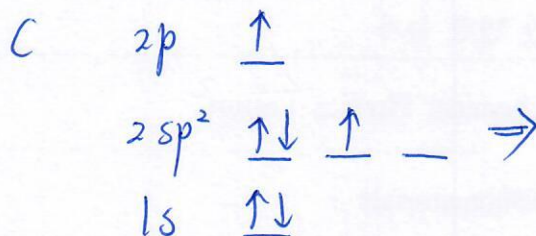 C 2p ↑
2sp² ↑↓ ↑ _ ⇒
1s ↑↓